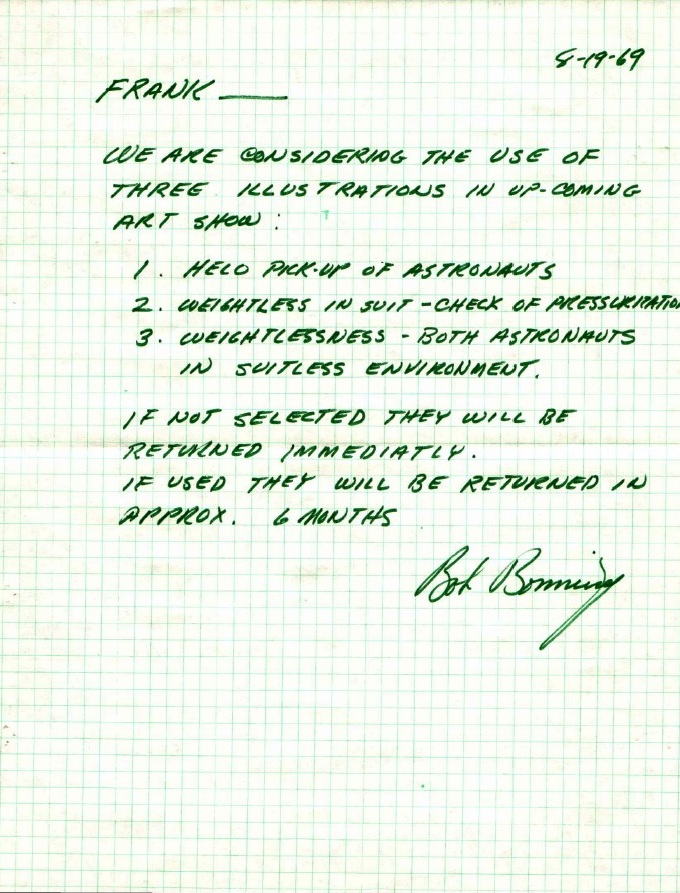 8-19-69
FRANK ___
WE ARE CONSIDERING THE USE OF
THREE ILLUSTRATIONS IN UP-COMING
ART SHOW:
1. HELO PICK-UP OF ASTRONAUTS
2. WEIGHTLESS IN SUIT - CHECK OF
3. WEIGHTLESSNESS - BOTH ASTRONAUTS
IN SUITLESS ENVIRONMENT.
IF NOT SELECTED THEY WILL BE
RETURNED IMMEDIATLY.
IF USED THEY WILL BE RETURNED IN
APPROX. 6 MONTHS
Bob